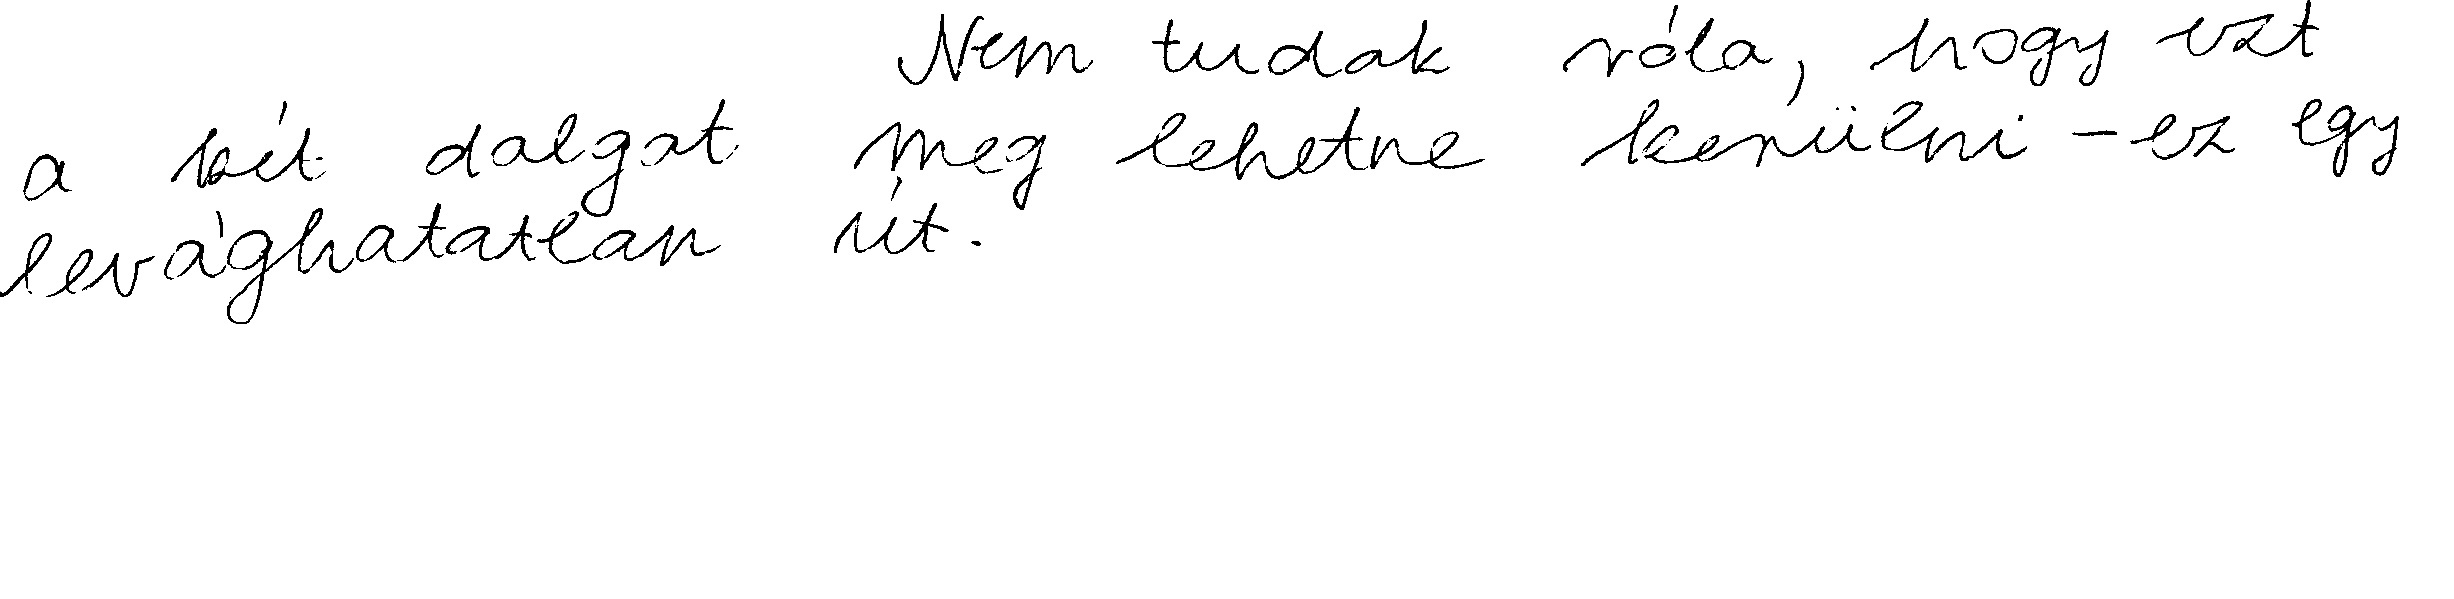 Nem tudok róla, hogy ezt
a két dolgot meg lehetne kerülni - ez egy
levághatatlan út.